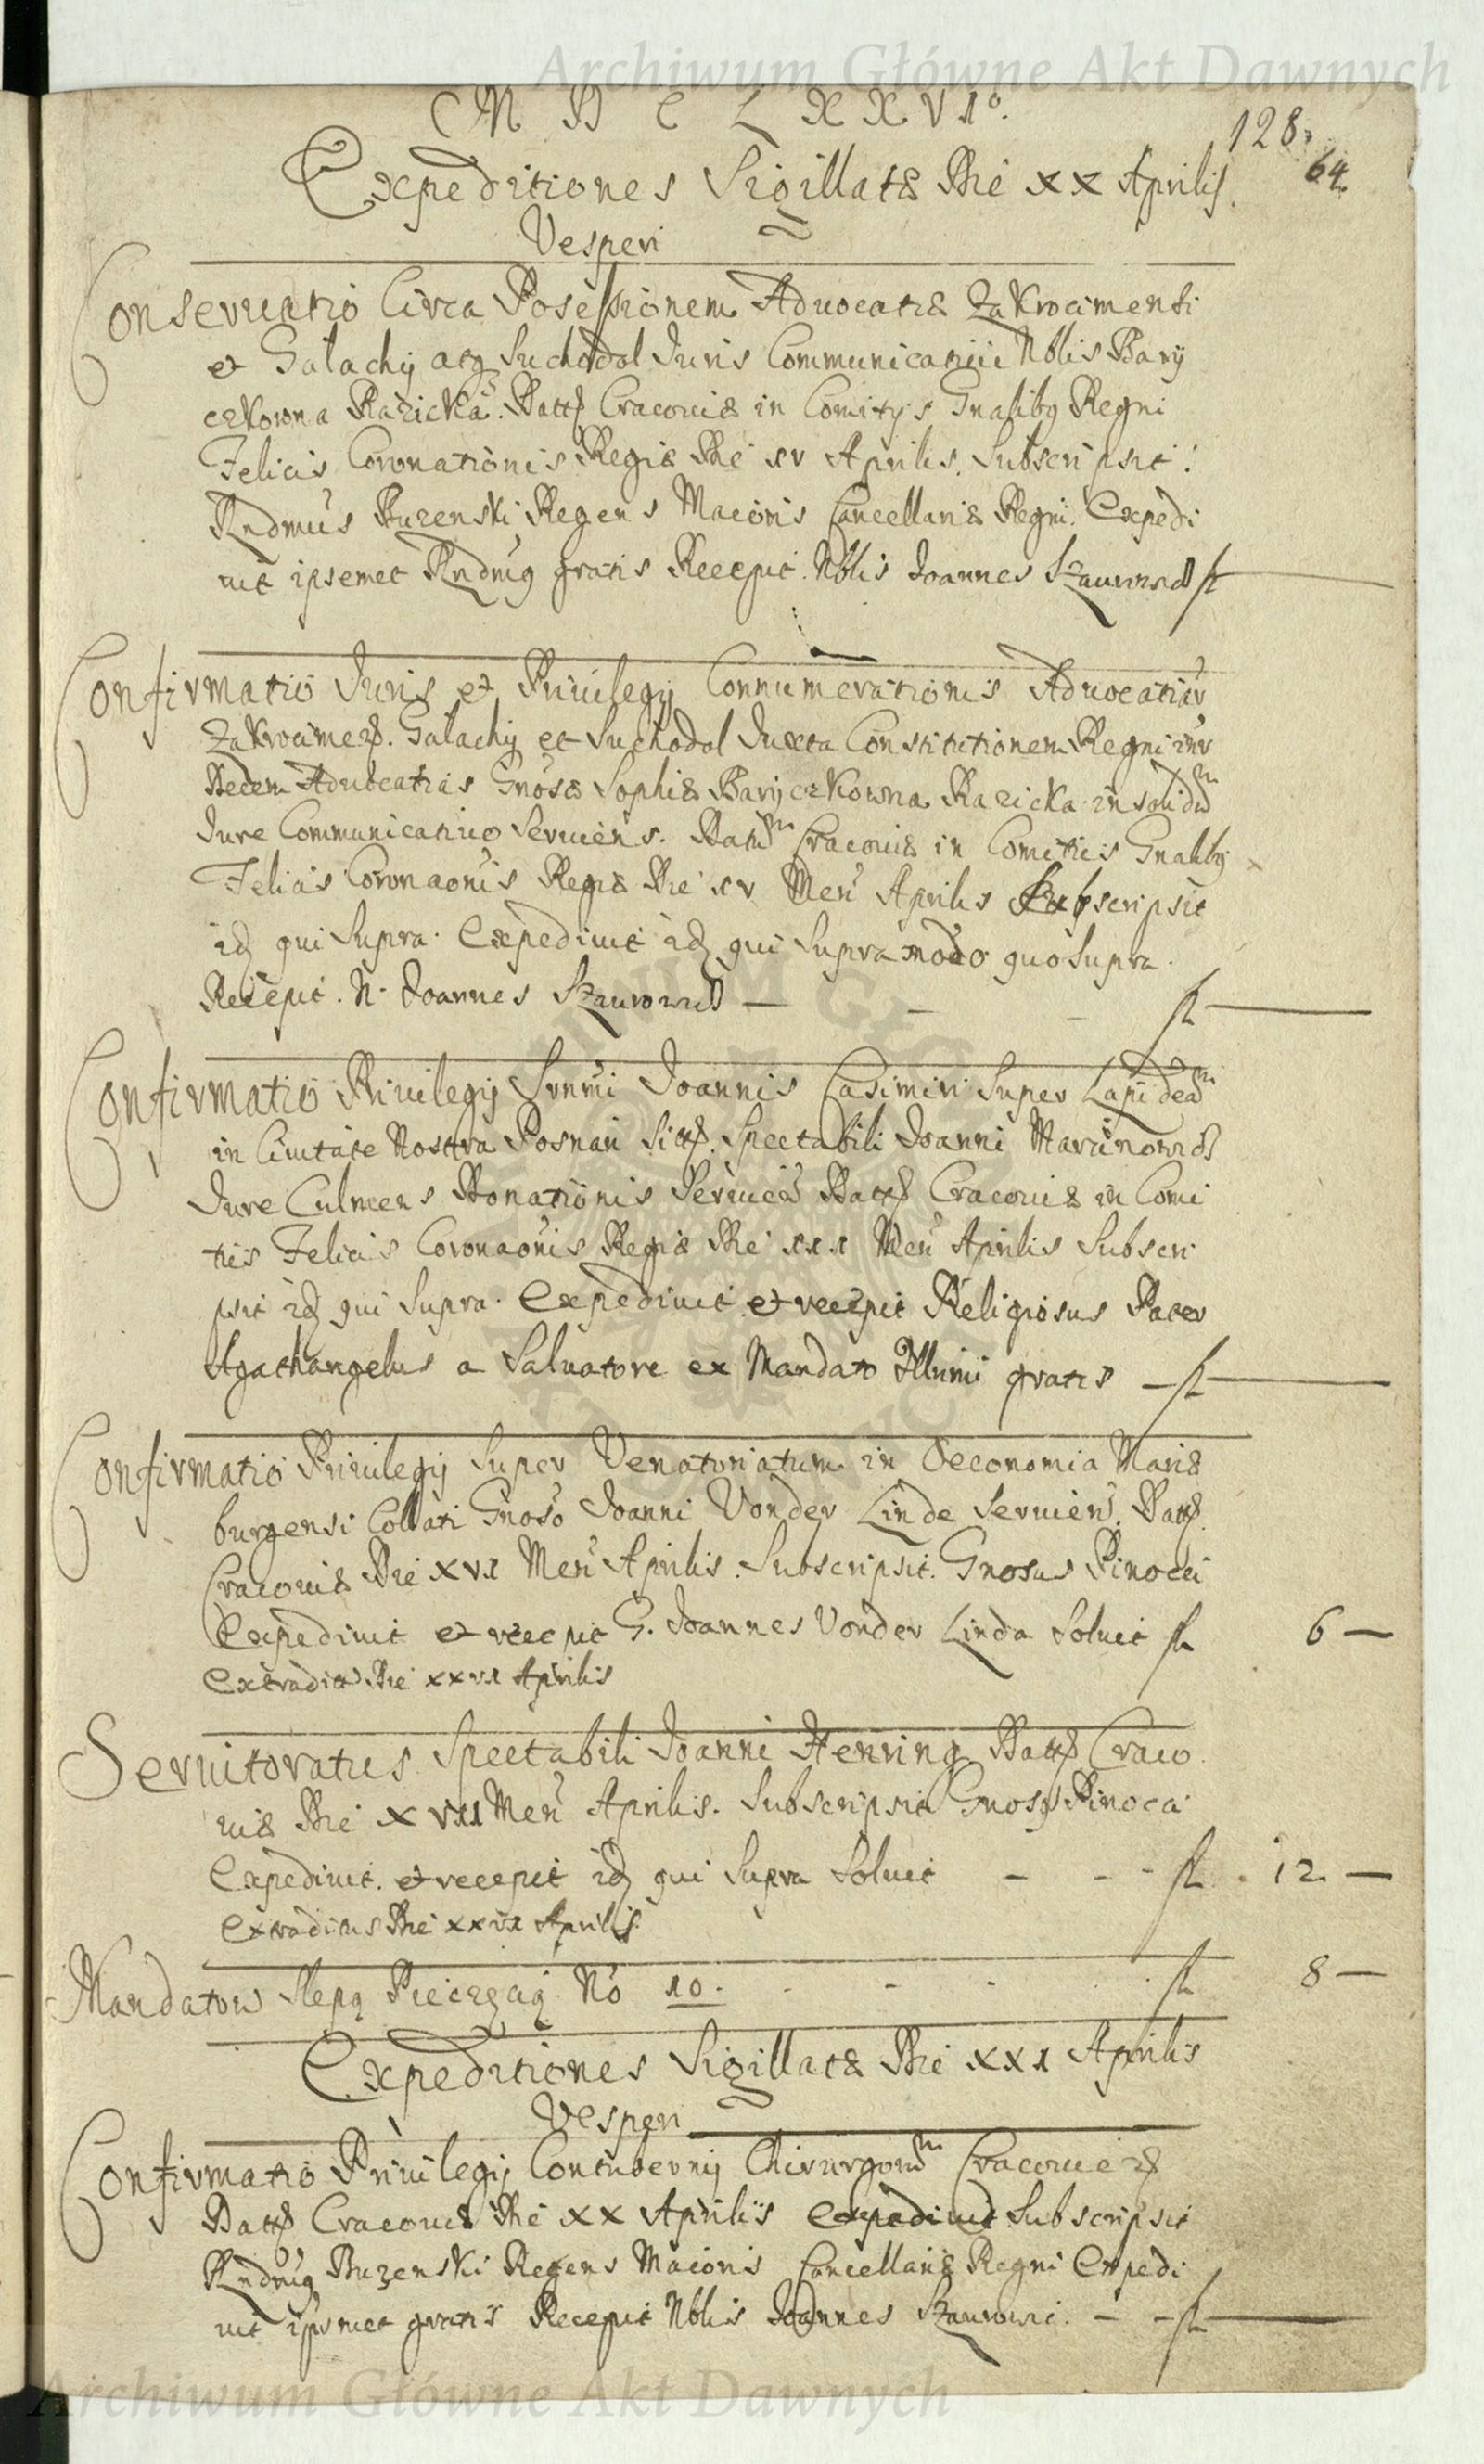 Archiwum Główne Akt Dawnych
M D C L X X V I o.
128.
64.
Expeditiones Sigillatæ Die xx Aprilis
Vesperi
Conservatio Circa Possessionem Advocatiæ Zakrocimensi
et Galachy atq Suchodol Juris Communicativi Nblis Bary
czkowna Razicka. Datt Cracoviæ in Comitys Gnalibq Regni
Felicis Coronationis Regiæ Die xv Aprilis. Subscripsit.
Rndmus Buzenski Regens Maioris Cancellariæ Regni. Expedi
vit ipsemet Rndmq gratis Recepit. Nblis Joannes fl
Confirmatio Juris et Privilegy Connumerationis Advocatiar
Zakrocimen. Galachy et Suchodol Juxta Constitutionem Regni inv
Advocatias Gnosæ Sophiæ Baryczkowna Razicka in solidu
Jure Communicativo Serviens. Cracoviæ in Comitiis Gnalibq
Felicis Coronaonis Regiæ Die xv Men Aprilis Subscripsit
idq qui Supra. Expedivit idq qui Supra modo quo Supra.
Recepit. N. Joannes fl
Confirmatio Privilegy Srnmi Joannis Casimiri Super Lapidea
in Civitate Nostra Posnan Sitt. Spectabili Joanni
Jure Culmens Donationis Datt Cracoviæ in Comi
tiis Felicis Coronaonis Regiæ Die Men Aprilis Subscri
psit idq qui Supra. Expedivit et recepit Religiosus Pater
Agathangelus a Salvatore ex Mandato Illmi gratis fl
Confirmatio Privilegy Super Venatoriatum in Oeconomia Mariæ
burgensi Collati Gnoso Joanni Vonder Linde Servien. Datt.
Cracoviæ Die xvi Men Aprilis. Subscripsit. Gnosus Pinocci
Expedivit et recepit G. Joannes Vonder Linda Solvit fl 6 —
Extradit Die xxvi Aprilis
Servitoratus Spectabili Joanni Henning Datt Craco
viæ Die xvii Men Aprilis. Subscripsit Gnosq Pinocci
Expedivit. et recepit idq qui Supra Solvit - - - fl. 12 —
Extraditus Die xxvi Aprilis
Mandatow Slepą Pieczęcią No 10. fl 8 —
Expeditiones Sigillatæ Die xxi Aprilis
Vesperi
Confirmatio Privilegy Contubernij Chirurgoru Cracovien
Datt Cracoviæ Die xx Aprilis Expedivit Subscripsit
Rndmq Buzenski Regens Maioris Cancellariæ Regni Expedi
vit ipsmet gratis Recepit Nblis Joannes - - fl
Archiwum Główne Akt Dawnych